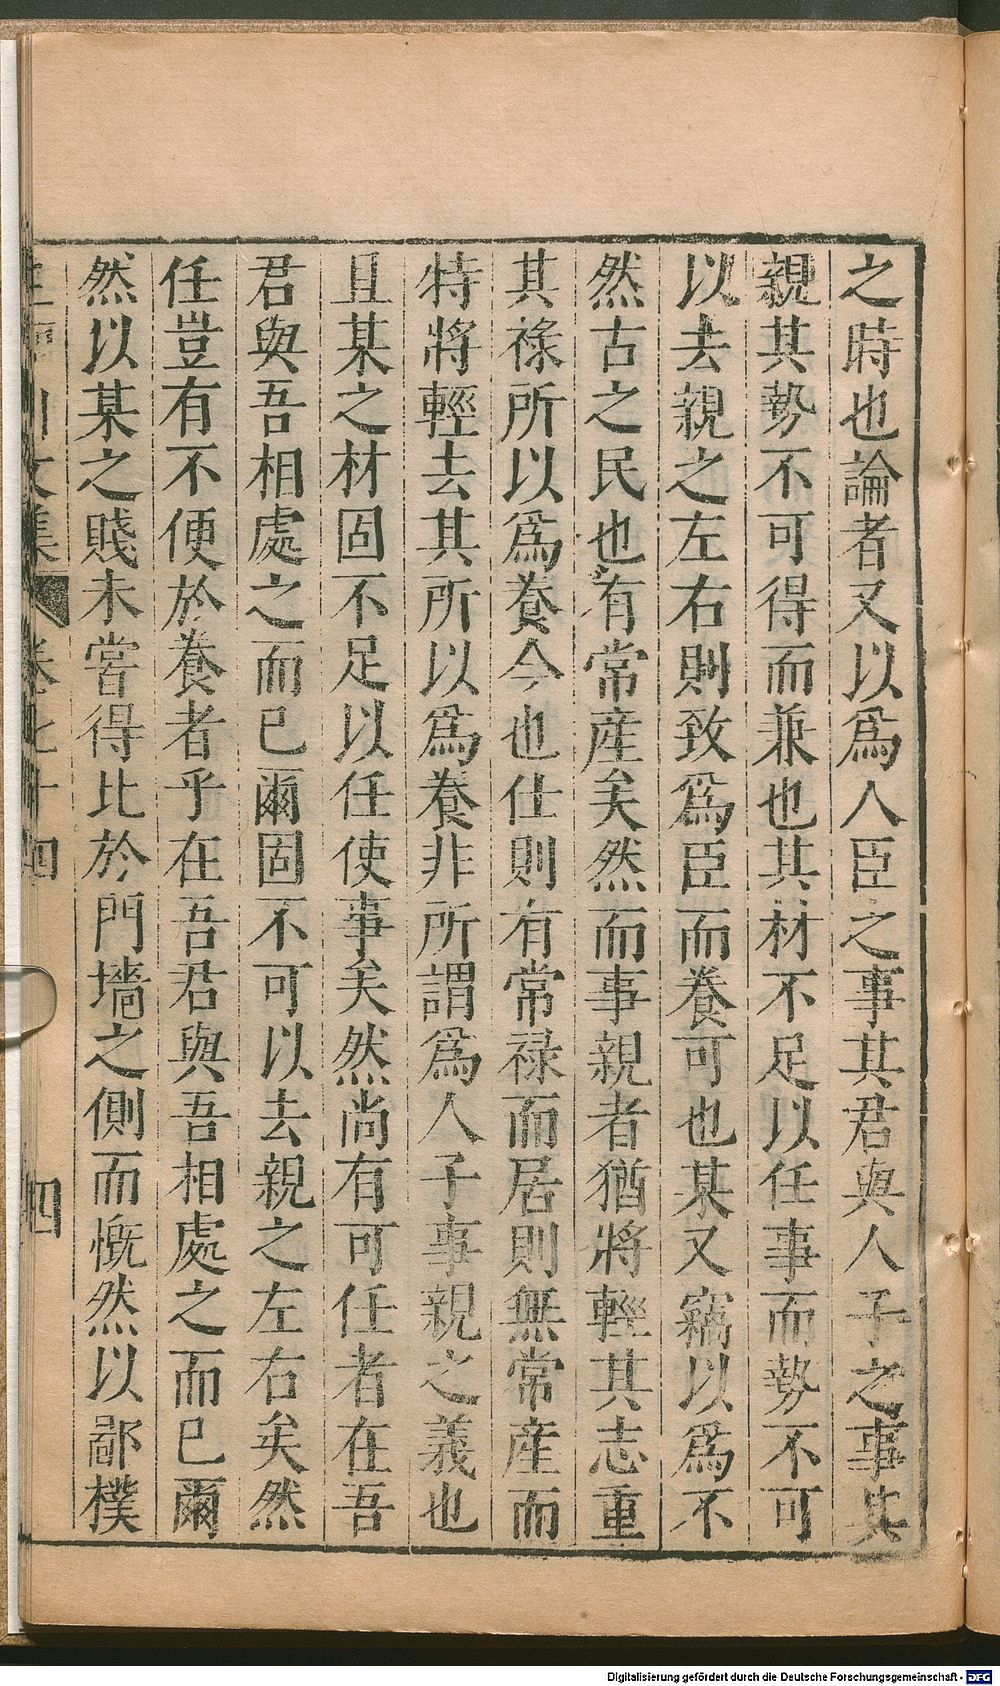 之時也論者又以爲人臣之事其君與人子之事其
親其勢不可得而兼也其材不足以任事而勢不可
以去親之左右則致爲臣而養可也某又竊以爲不
然古之民也有常產矣然而事親者猶將輕其志重
其祿所以爲養今也仕則有常祿而居則無常產而
特將輕去其所以爲養非所謂爲人子事親之義也
且某之材固不足以任使事矣然尚有可任者在吾
君與吾相處之而已爾固不可以去親之左右矣然
任豈有不便於養者乎在吾君與吾相處之而已爾
然以某之賤未嘗得比於門墻之側而慨然以鄙樸
川文集 卷七十四 四
Digitalisierung gefördert durch die Deutsche Forschungsgemeinschaft - DFG